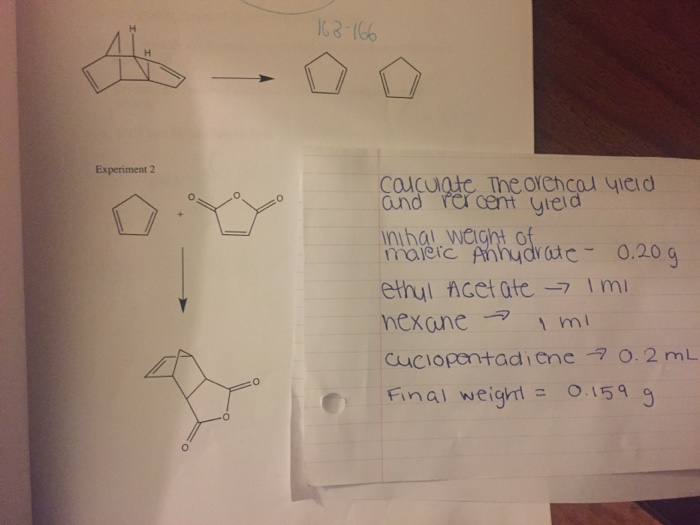 163-166
H
H
Experiment 2
+
O
O
O
O
O
O
Calculate Theoretical yield
and Percent yield
initial weight of
maleic Anhydrate - 0.20 g
ethyl Acetate → 1 ml
hexane → 1 ml
cyclopentadiene → 0.2 mL
Final weight = 0.159 g